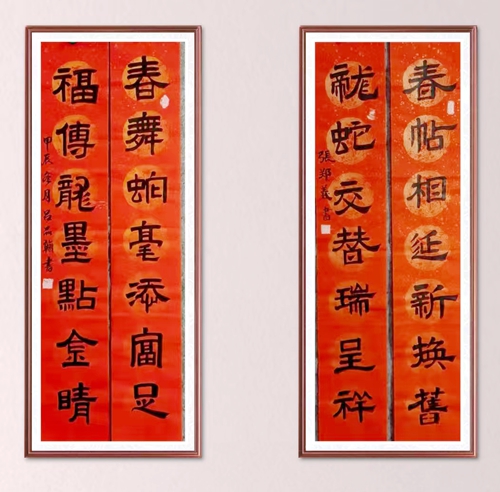 春舞虵毫添富足
福傳龍墨點金睛
甲辰冬月吕書
春帖相延新换舊
龍蛇交替瑞呈祥
張書